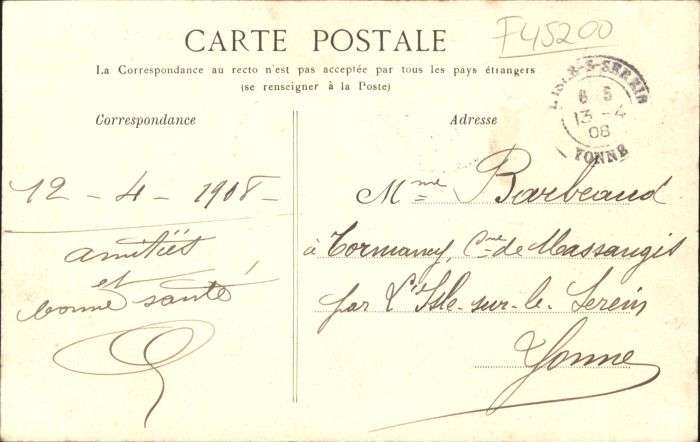 F45200
CARTE POSTALE
La Correspondance au recto n'est pas acceptée par tous les pays étrangers
(se renseigner à la Poste)
Correspondance
Adresse
L'ISLE-S-SEREIN
6 5
13 - 4
08
YONNE
12 - 4 - 1908 -
amitiés
et
bonne santé
Mme Barbeaud
à Tormancy, Cne de Massangis
par L'Isle-sur-le-Serein
Yonne